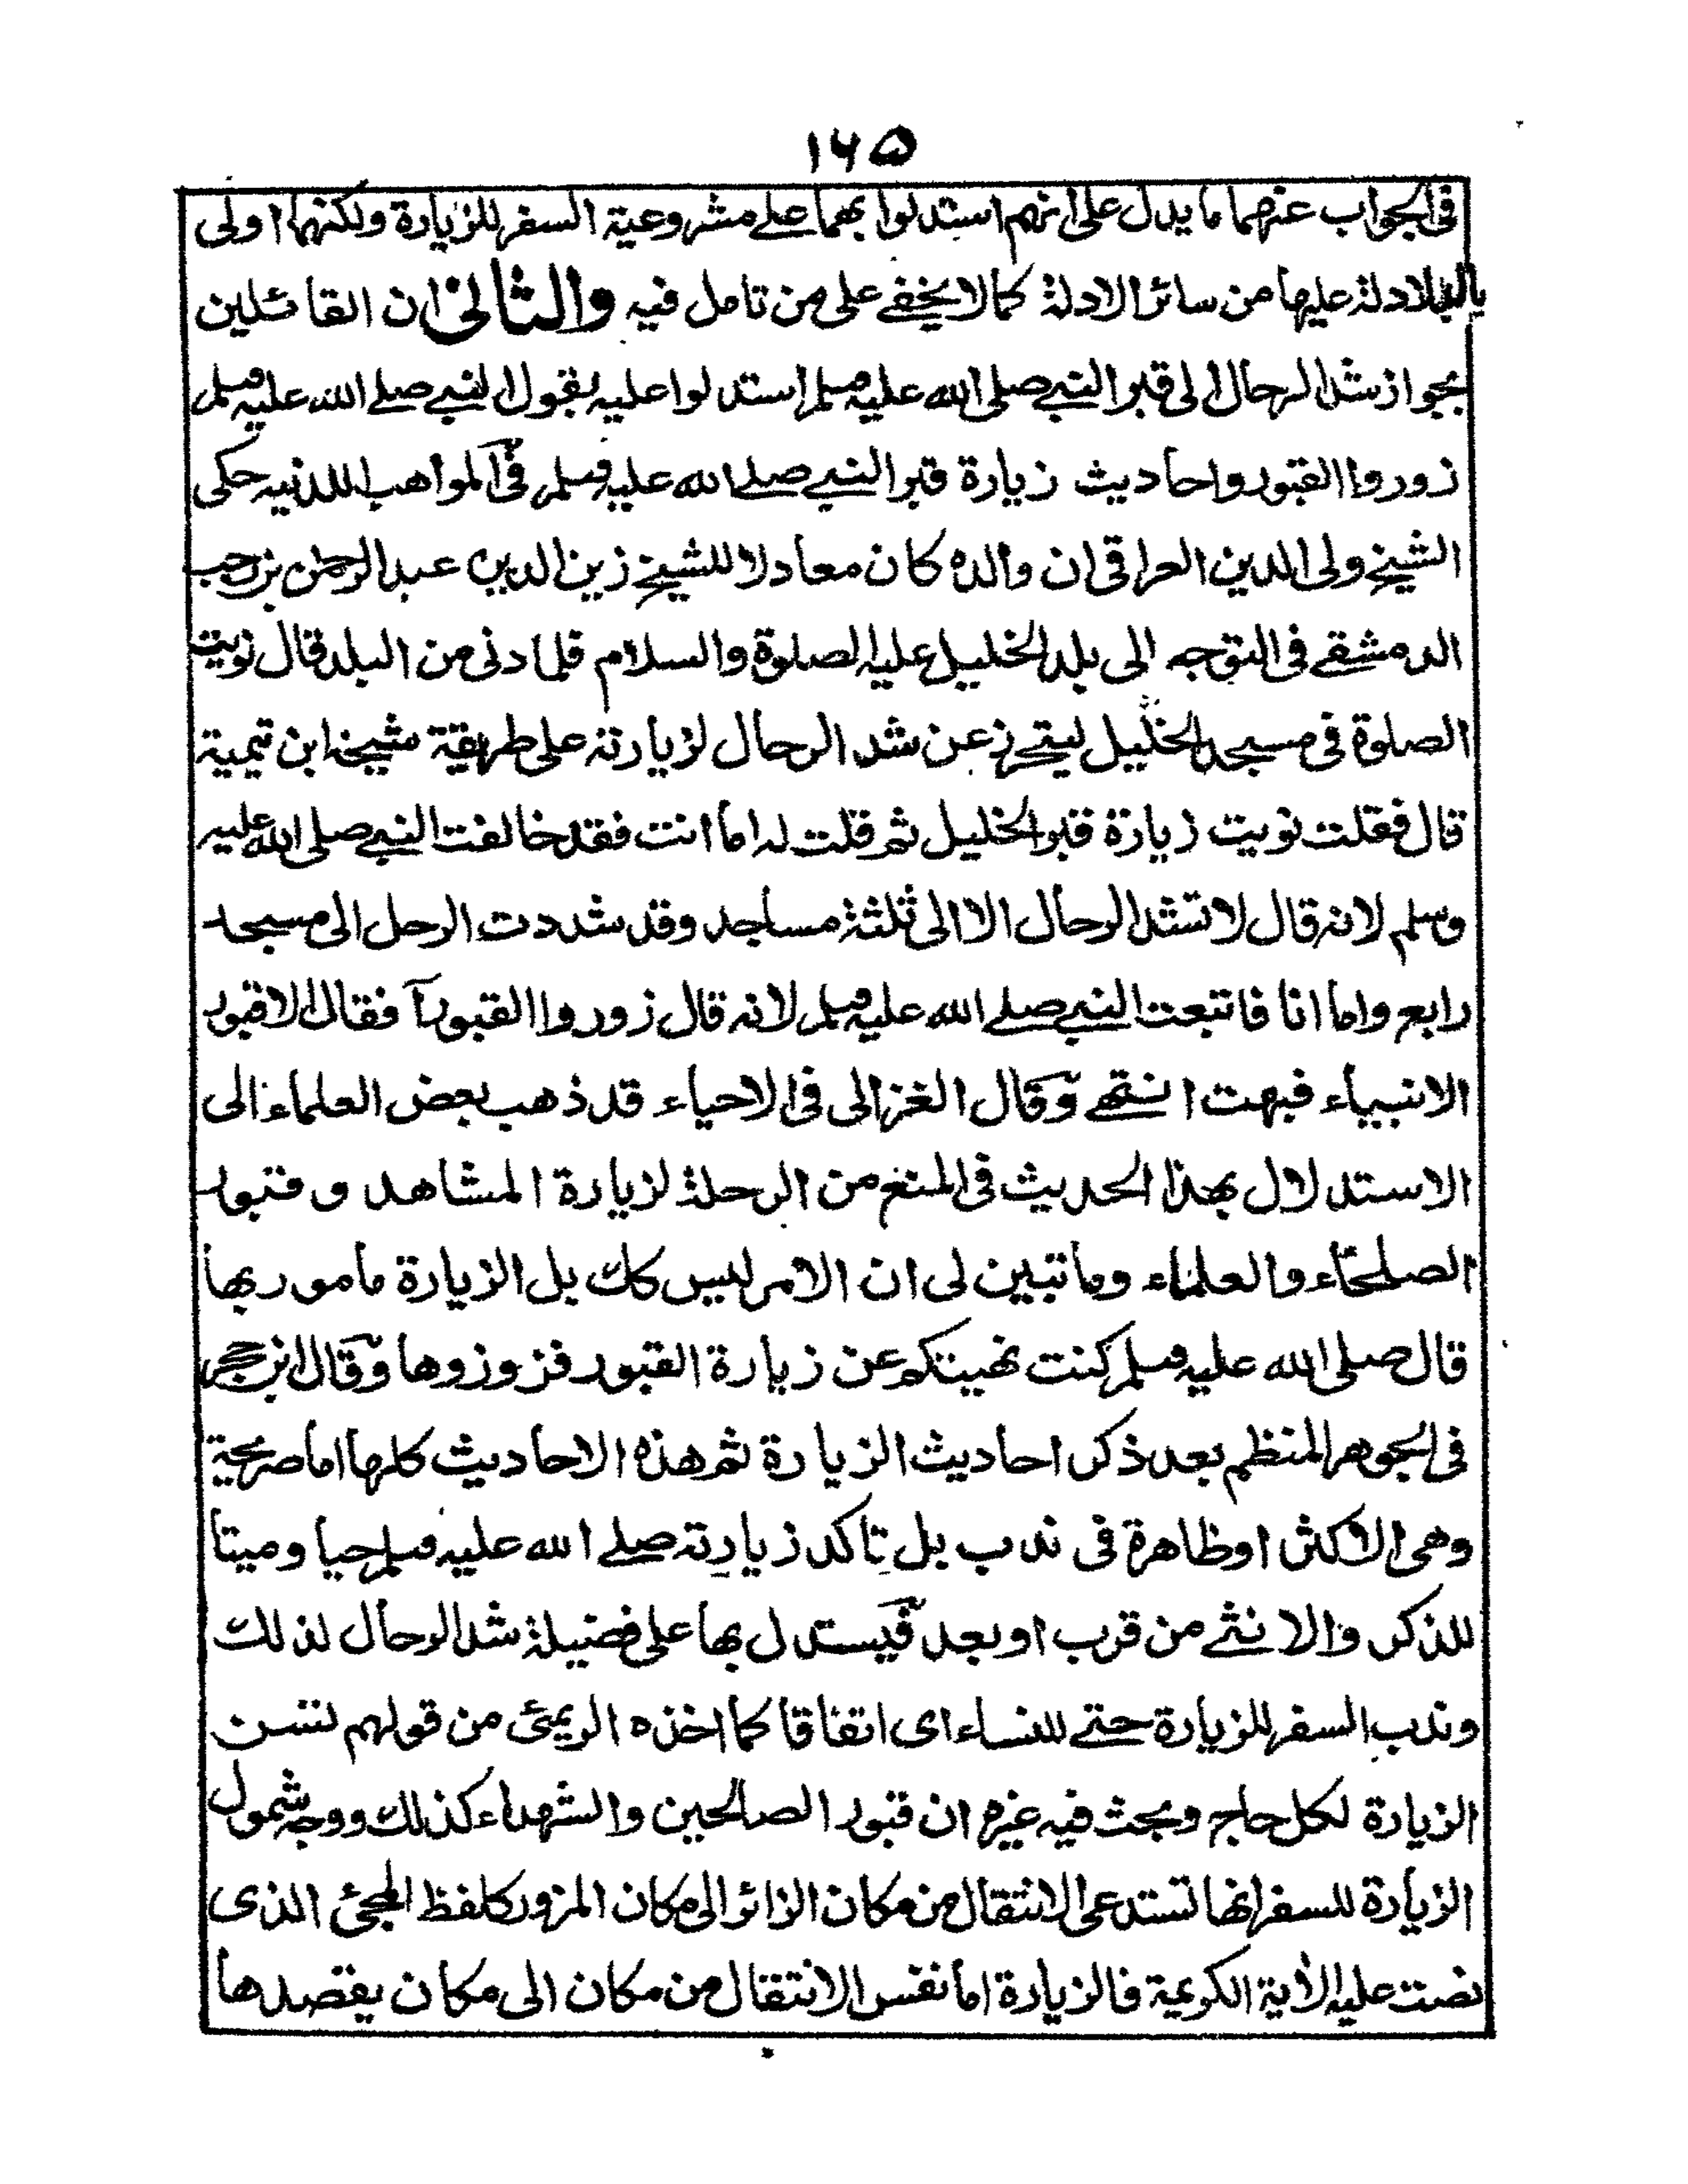 ١٦٥
فى الجواب عنهما ما يدل على انهم استدلوا بهما على مشروعية السفر للزيارة ولكنهما اولى
عليها من سائر الادلة كما لا يخفى على من تامل فيه والثانى ان القائلين
بجواز شد الرحال الى قبر النبى صلى الله عليه وسلم استدلوا عليه بقول النبى صلى الله عليه وسلم
زوروا القبور واحاديث زيارة قبر النبى صلى الله عليه وسلم فى المواهب اللدنيه حكى
الشيخ ولى الدين العراقى ان والده كان معادلا للشيخ زين الدين عبد الرحمن بن رجب
الدمشقى فى التوجه الى بلد الخليل عليه الصلوة والسلام فلما دنى من البلد قال نويت
الصلوة فى مسجد الخليل ليتحرز عن شد الرحال لزيارته على طريقة شيخه ابن تيمية
قال فقلت نويت زيارة قبر الخليل ثم قلت له اما انت فقد خالفت النبى صلى الله عليه
وسلم لانه قال لا تشد الرحال الا الى ثلثة مساجد وقد شددت الرحل الى مسجد
رابع واما انا فاتبعت النبى صلى الله عليه وسلم لانه قال زوروا القبور آ فقال الا قبور
الانبياء فبهت انتهى وقال الغزالى فى الاحياء قد ذهب بعض العلماء الى
الاستدلال بهذا الحديث فى المنع من الرحلة لزيارة المشاهد و قبور
الصلحاء والعلماء وما تبين لى ان الامر ليس كك بل الزيارة مأمور بها
قال صلى الله عليه وسلم كنت نهيتكم عن زيارة القبور فزوروها وقال ابن حجر
فى الجوهر المنظم بعد ذكر احاديث الزيارة ثم هذه الاحاديث كلها اما صريحة
وهى الاكثر او ظاهرة فى ندب بل تاكد زيارته صلى الله عليه وسلم حيا وميتا
للذكر والانثى من قرب او بعد فيستدل بها على فضيلة شد الرحال لذلك
وندب السفر للزيارة حتى للنساء اى اتفاقا كما اخذه الريمئ من قولهم تسن
الزيارة لكل حاج وبحث فيه غيره ان قبور الصالحين والشهداء كذلك ووجه شمول
الزيارة للسفر انها تستدعى الانتقال من مكان الزائر الى مكان المزور كلفظ المجئ الذى
نصت عليه الاية الكريمة فالزيارة اما نفس الانتقال من مكان الى مكان يقصدها